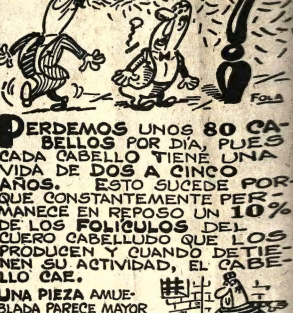 FOLA
PERDEMOS UNOS 80 CA-
BELLOS POR DÍA, PUES
CADA CABELLO TIENE UNA
VIDA DE DOS A CINCO
AÑOS. ESTO SUCEDE POR-
QUE CONSTANTEMENTE PER-
MANECE EN REPOSO UN 10%
DE LOS FOLICULOS DEL
CUERO CABELLUDO QUE LOS
PRODUCEN Y CUANDO DETIE-
NEN SU ACTIVIDAD, EL CABE-
LLO CAE.
UNA PIEZA AMUE-
BLADA PARECE MAYOR